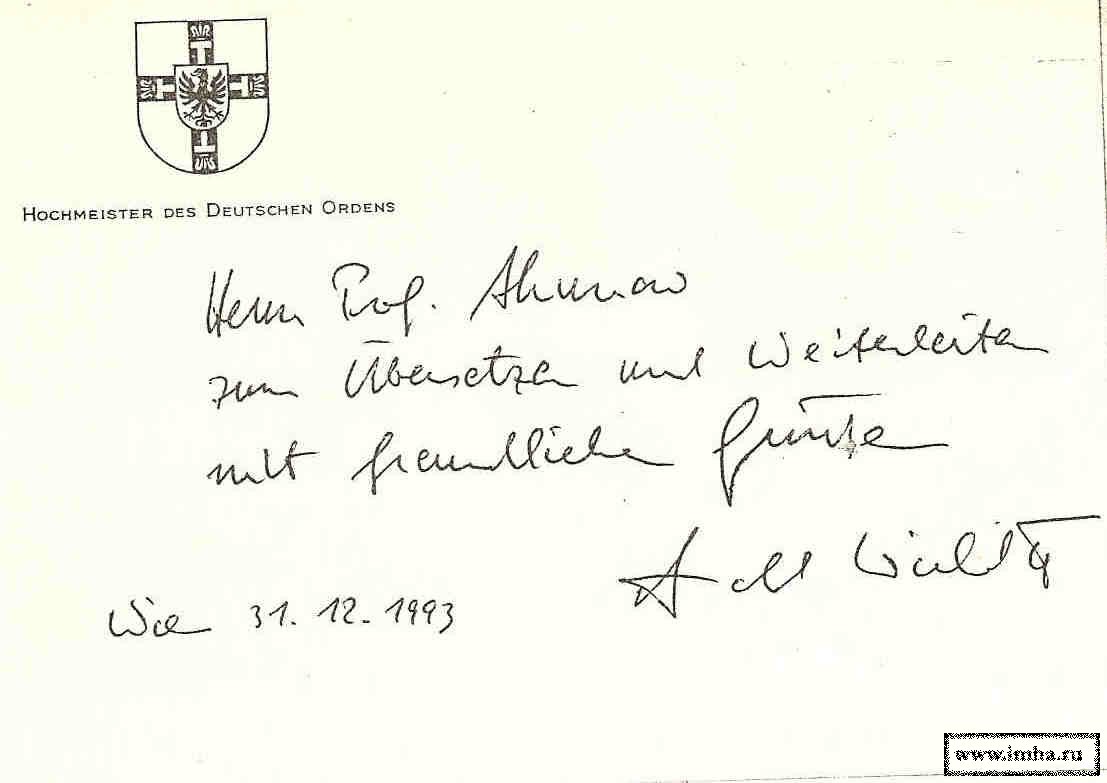 HOCHMEISTER DES DEUTSCHEN ORDENS
Herrn Prof. Ahunow
zum Übersetzen und Weiterleiten
mit freundlichen Grüßen
Arnold Wieland
Wien 31. 12. 1993
www.imha.ru